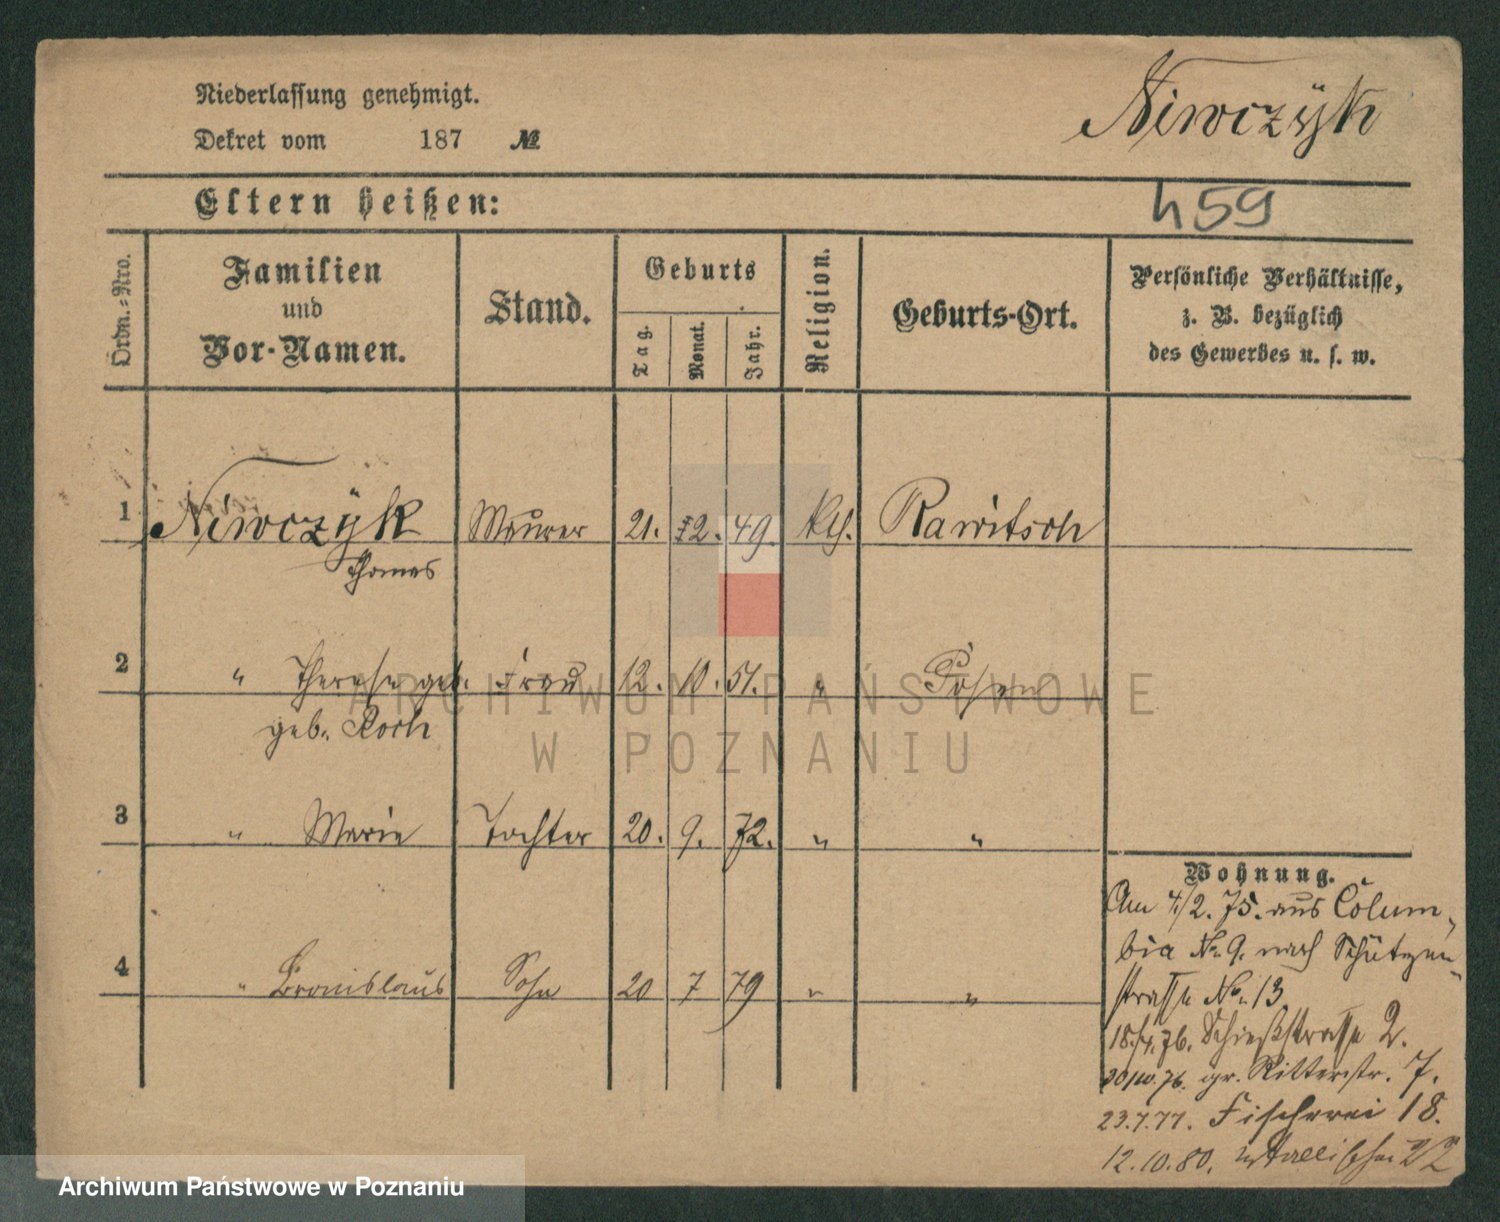 Niederlassung genehmigt.
Niwczÿk
Dekret vom 187 №
Eltern heißen:
h 59
Ordn.=Nro.
Familien
und
Vor-Namen.
Stand.
Geburts
Tag.
Monat.
Jahr.
Religion.
Geburts-Ort.
Persönliche Verhältnisse,
z. B. bezüglich
des Gewerbes u. s. w.
1 Niwczÿk Maurer 21. 12. 49. kth. Rawitsch
Thomas
2 " Therese geb. Frau 12. 10. 51. " Posen
geb. Roch
3 " Marie Tochter 20. 9. 72. " "
4 " Bronislaus Sohn 20 7 79 " "
Wohnung.
Am 4/2. 75. aus Colum-
bia No. 9. nach Schützen-
strasse No. 13
18./4. 76. Schießstrasse 2.
gr. Ritterstr. 7.
23.7.77. Fischerei 18.
12.10.80. Wallischei 22
ARCHIWUM PAŃSTWOWE
W POZNANIU
Archiwum Państwowe w Poznaniu